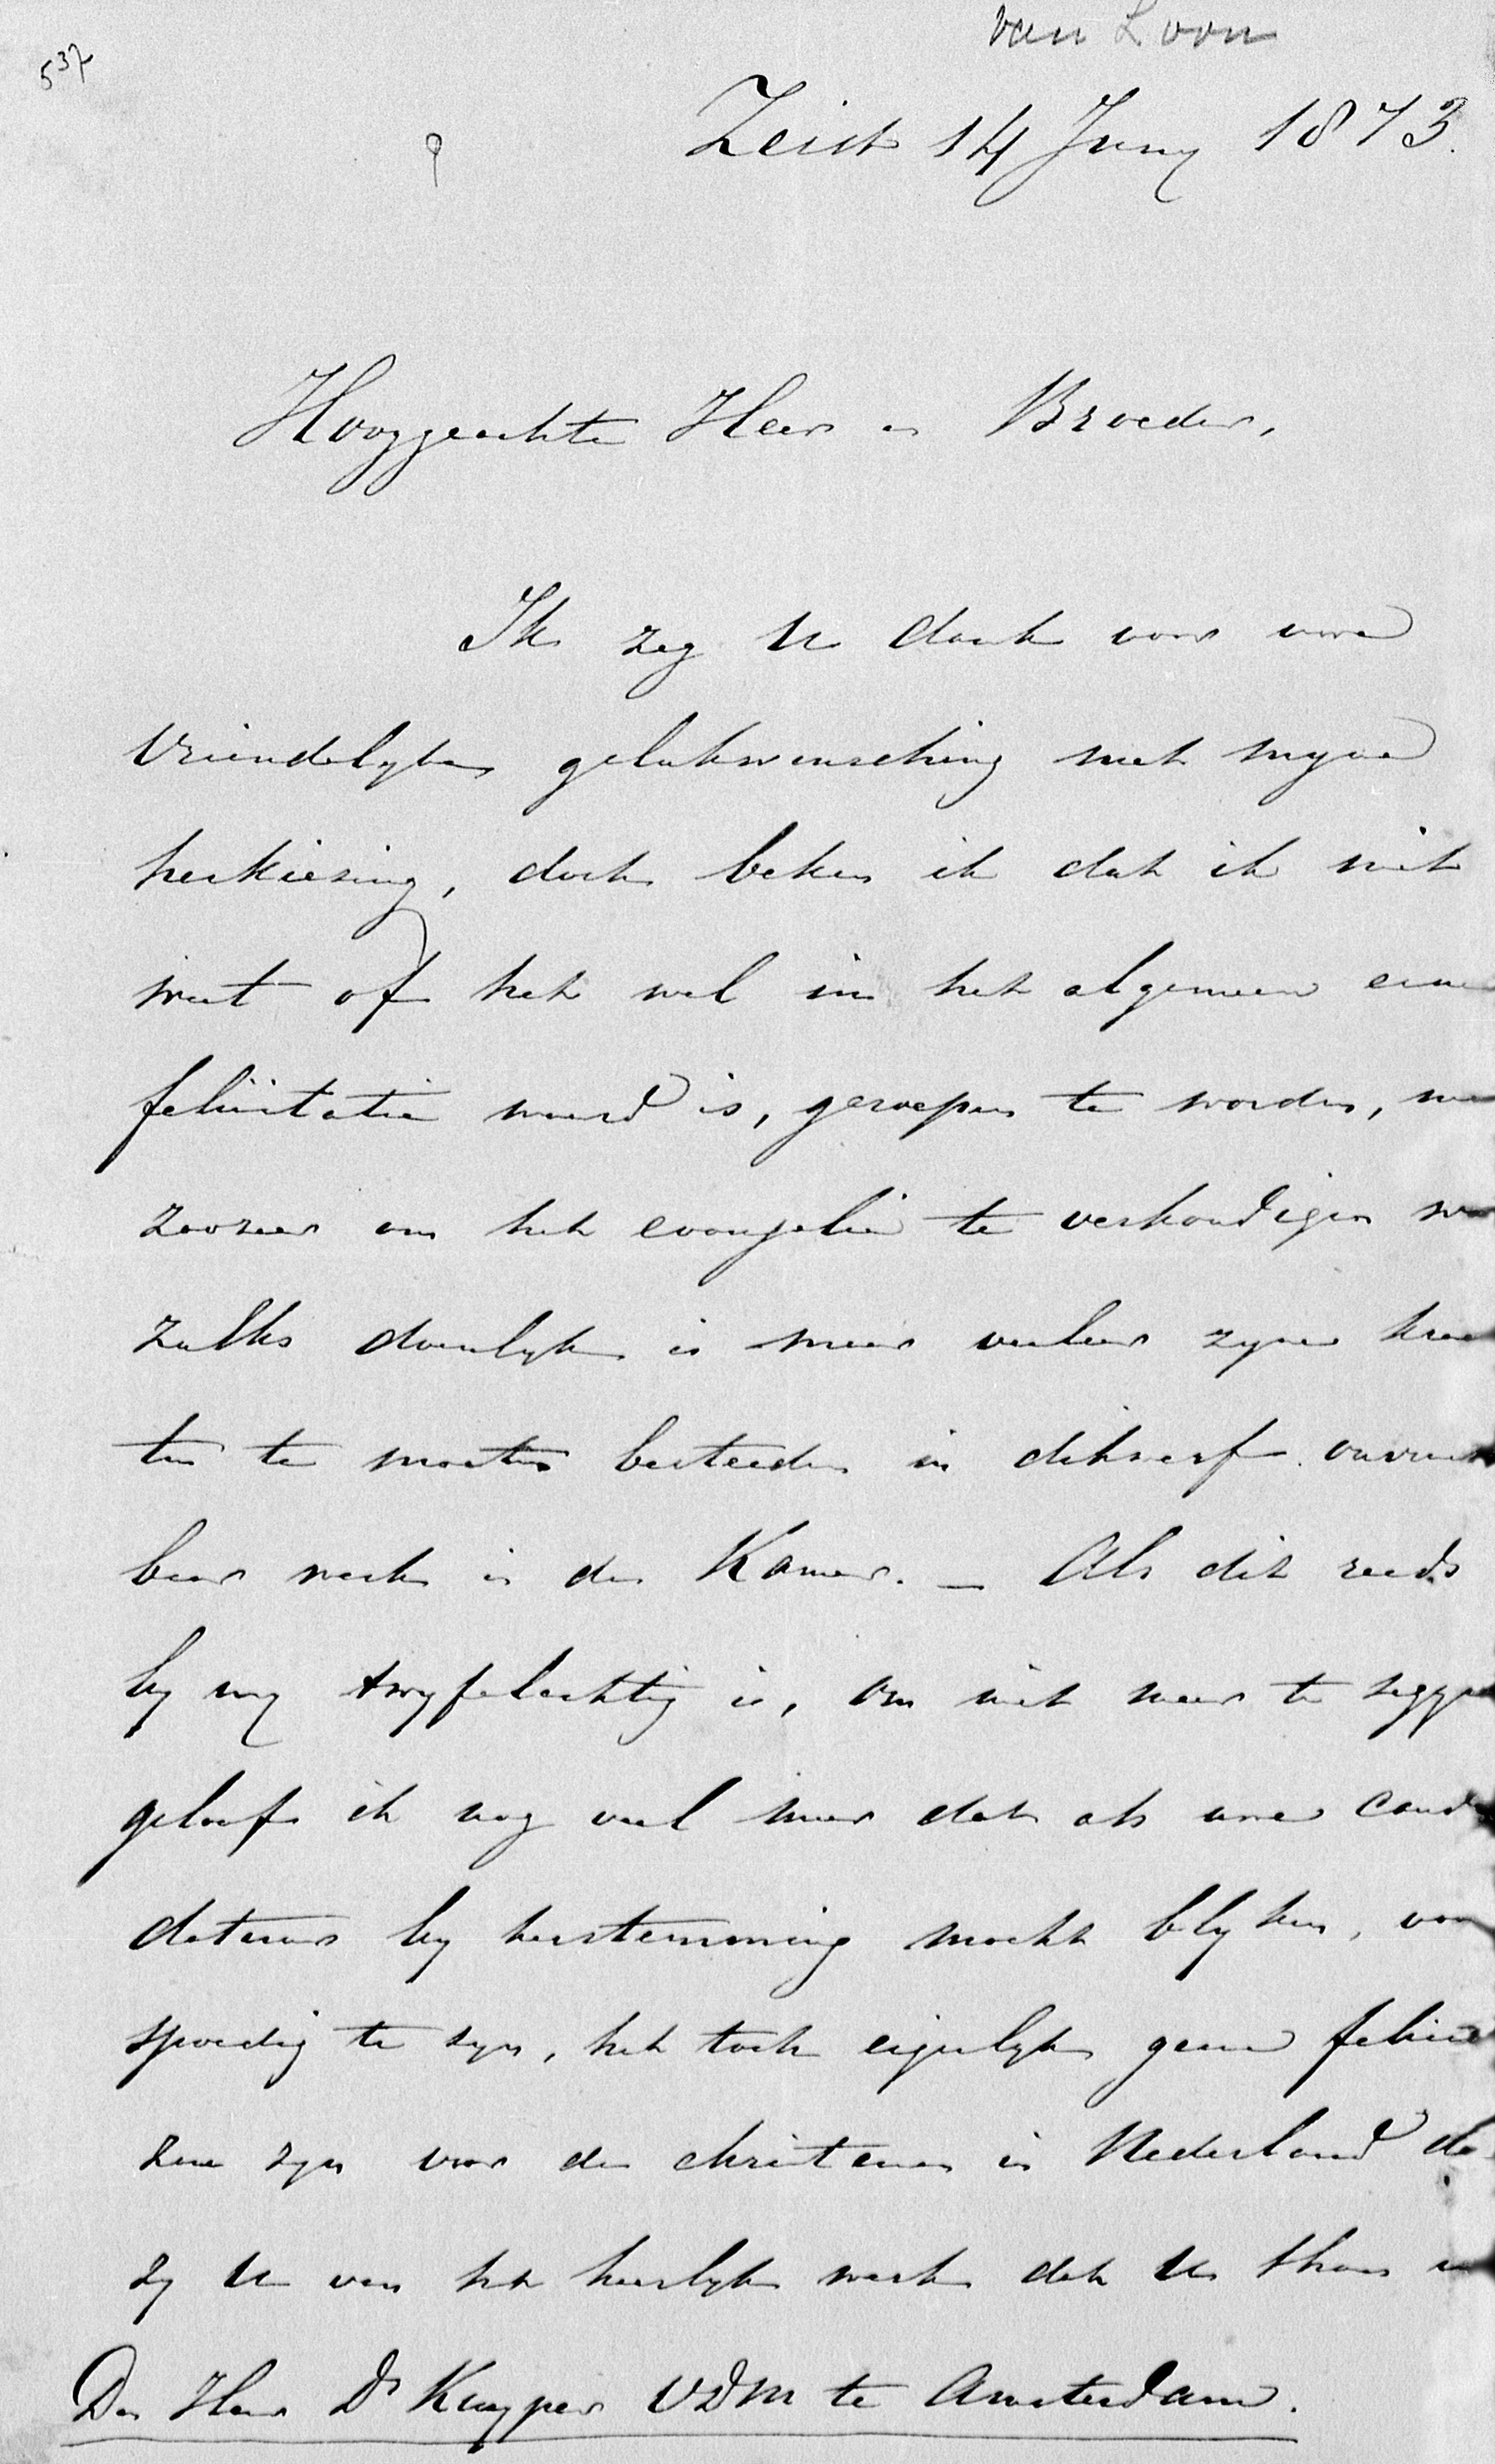 van Loon
537
Zeist 14 Juny 1873.
Hooggeachte Heer en Broeder,
Ik zeg U dank voor uwe
vriendelyke gelukwensching met myne
herkiezing, doch beken ik dat ik niet
weet of het wel in het algemeen eene
felicitatie waard is, geroepen te worden, 
zoozeer om het evangelie te verkondigen
zulks doenlyk is maar veeleer zyne
ten te moeten besteeden in dikwerf
baar werk in de Kamer. — Als dit reeds
by my twyfelachtig is, om niet meer te zeggen
geloof ik nog veel meer dat als uwe candi
datuur by herstemming mocht blyken, voor
spoedig te zyn, het toch eigenlyk geene
zou zyn voor de christenen in Nederland
zy U van het heerlyk werk dat U thans
Den Heer Dr Kuyper VDM te Amsterdam.